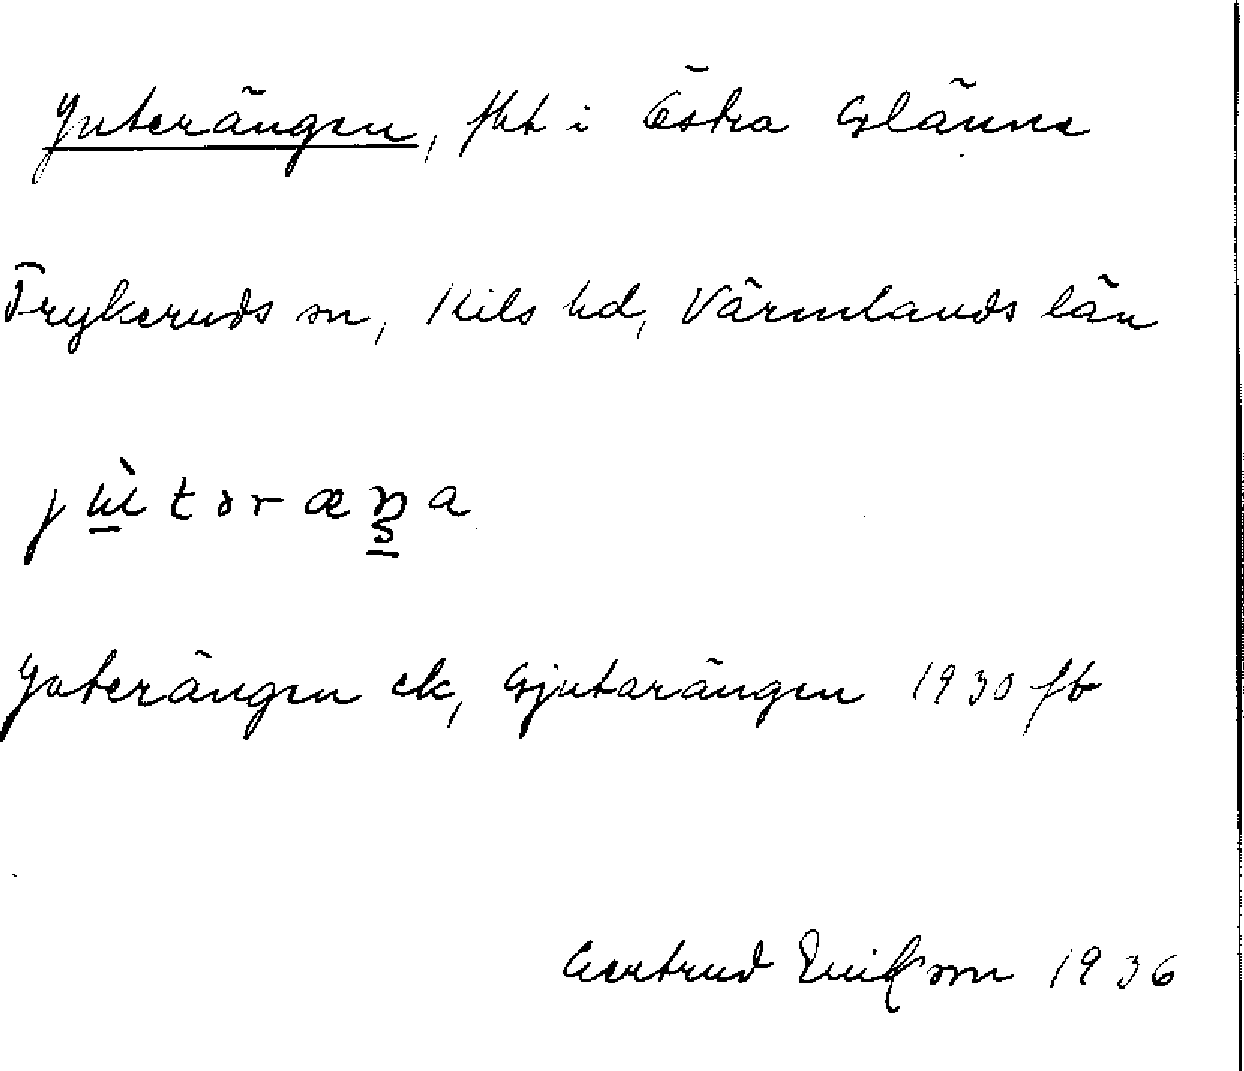 Juterängen, fht i Östra Glänne
Frykeruds sn, Kils hd, Värmlands län
Joterängen ek, Gjutarängen 1930 fb
Gertrud Eriksson 1936